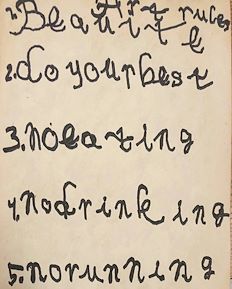 Art rules
1.
2.do your best
3.no eating
4.no drinking
5.no running